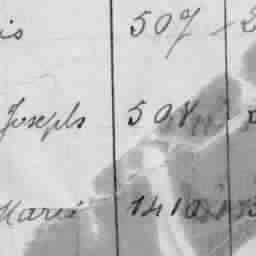 is 507
Josephs 508
Marie 1410